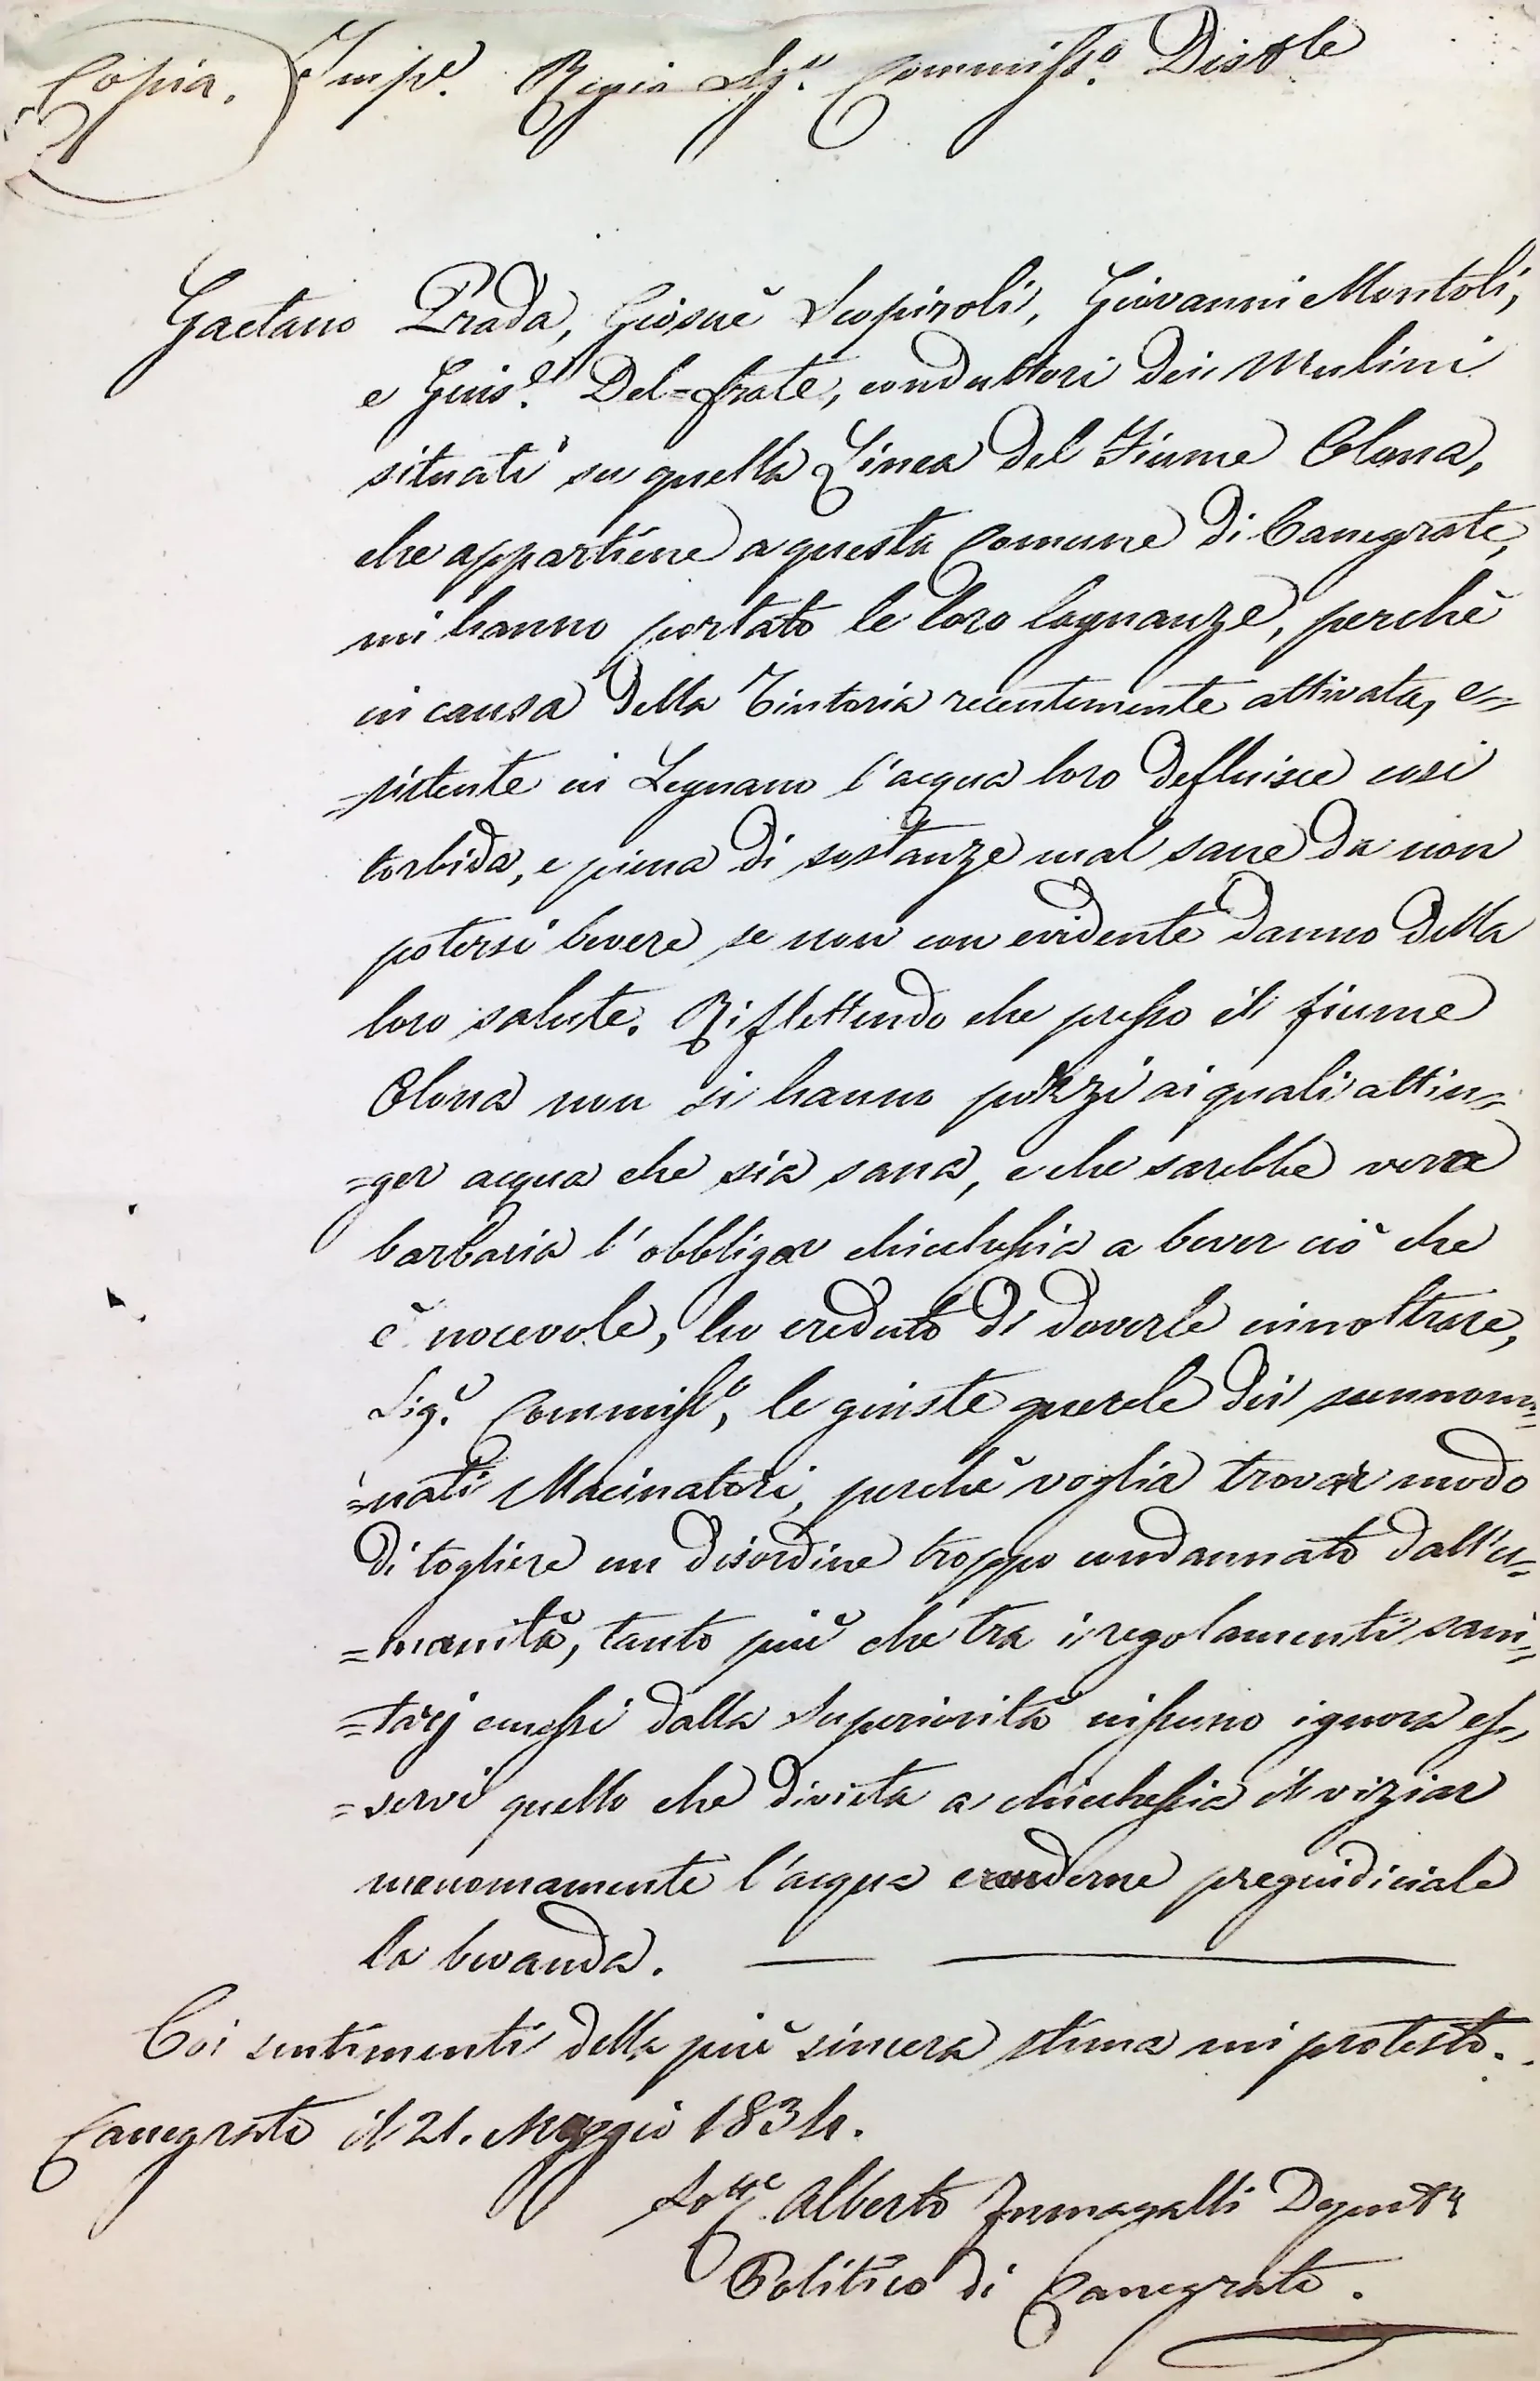 Copia. Imp.e Regio Sig.r Commiss.o Dist.le
Gaetano Prada, Giosuè Scopiroli, Giovanni Montoli,
e Gius.e Del=frate, conduttori dei Mulini
situati su quella Linea del Fiume Olona,
che appartiene a questa Comune di Canegrate,
mi hanno portato le loro lagnanze, perchè
in causa della Tintoria recentemente attivata, e=
=sistente in Legnano l'acqua loro defluisce così
torbida, e piena di sostanze mal sane da non
potersi bevere se non con evidente danno della
loro salute. Riflettendo che presso il fiume
Olona non si hanno pozzi ai quali attin=
=ger acqua che sia sana, e che sarebbe vera
barbaria l'obbligar chicchessia a bever ciò che
è nocevole, ho creduto di doverle innoltrare,
Sig.r Commiss.o, le giuste querele dei sunnomi=
=nati Macinatori, perchè voglia trovar modo
di togliere un disordine troppo condannato dall'u=
=manità, tanto più che tra i regolamenti sani=
=tarj emessi dalla Superiorità nissuno ignora es=
=servi quello che divieta a chicchessia il viziar
menomamente l'acqua e renderne pregiudiciale
la bevanda.
Coi sentimenti della più sincera stima mi protesto.
Canegrate il 21. Maggio 1834.
Sott.e Alberto Fumagalli Deput.o
Politico di Canegrate.